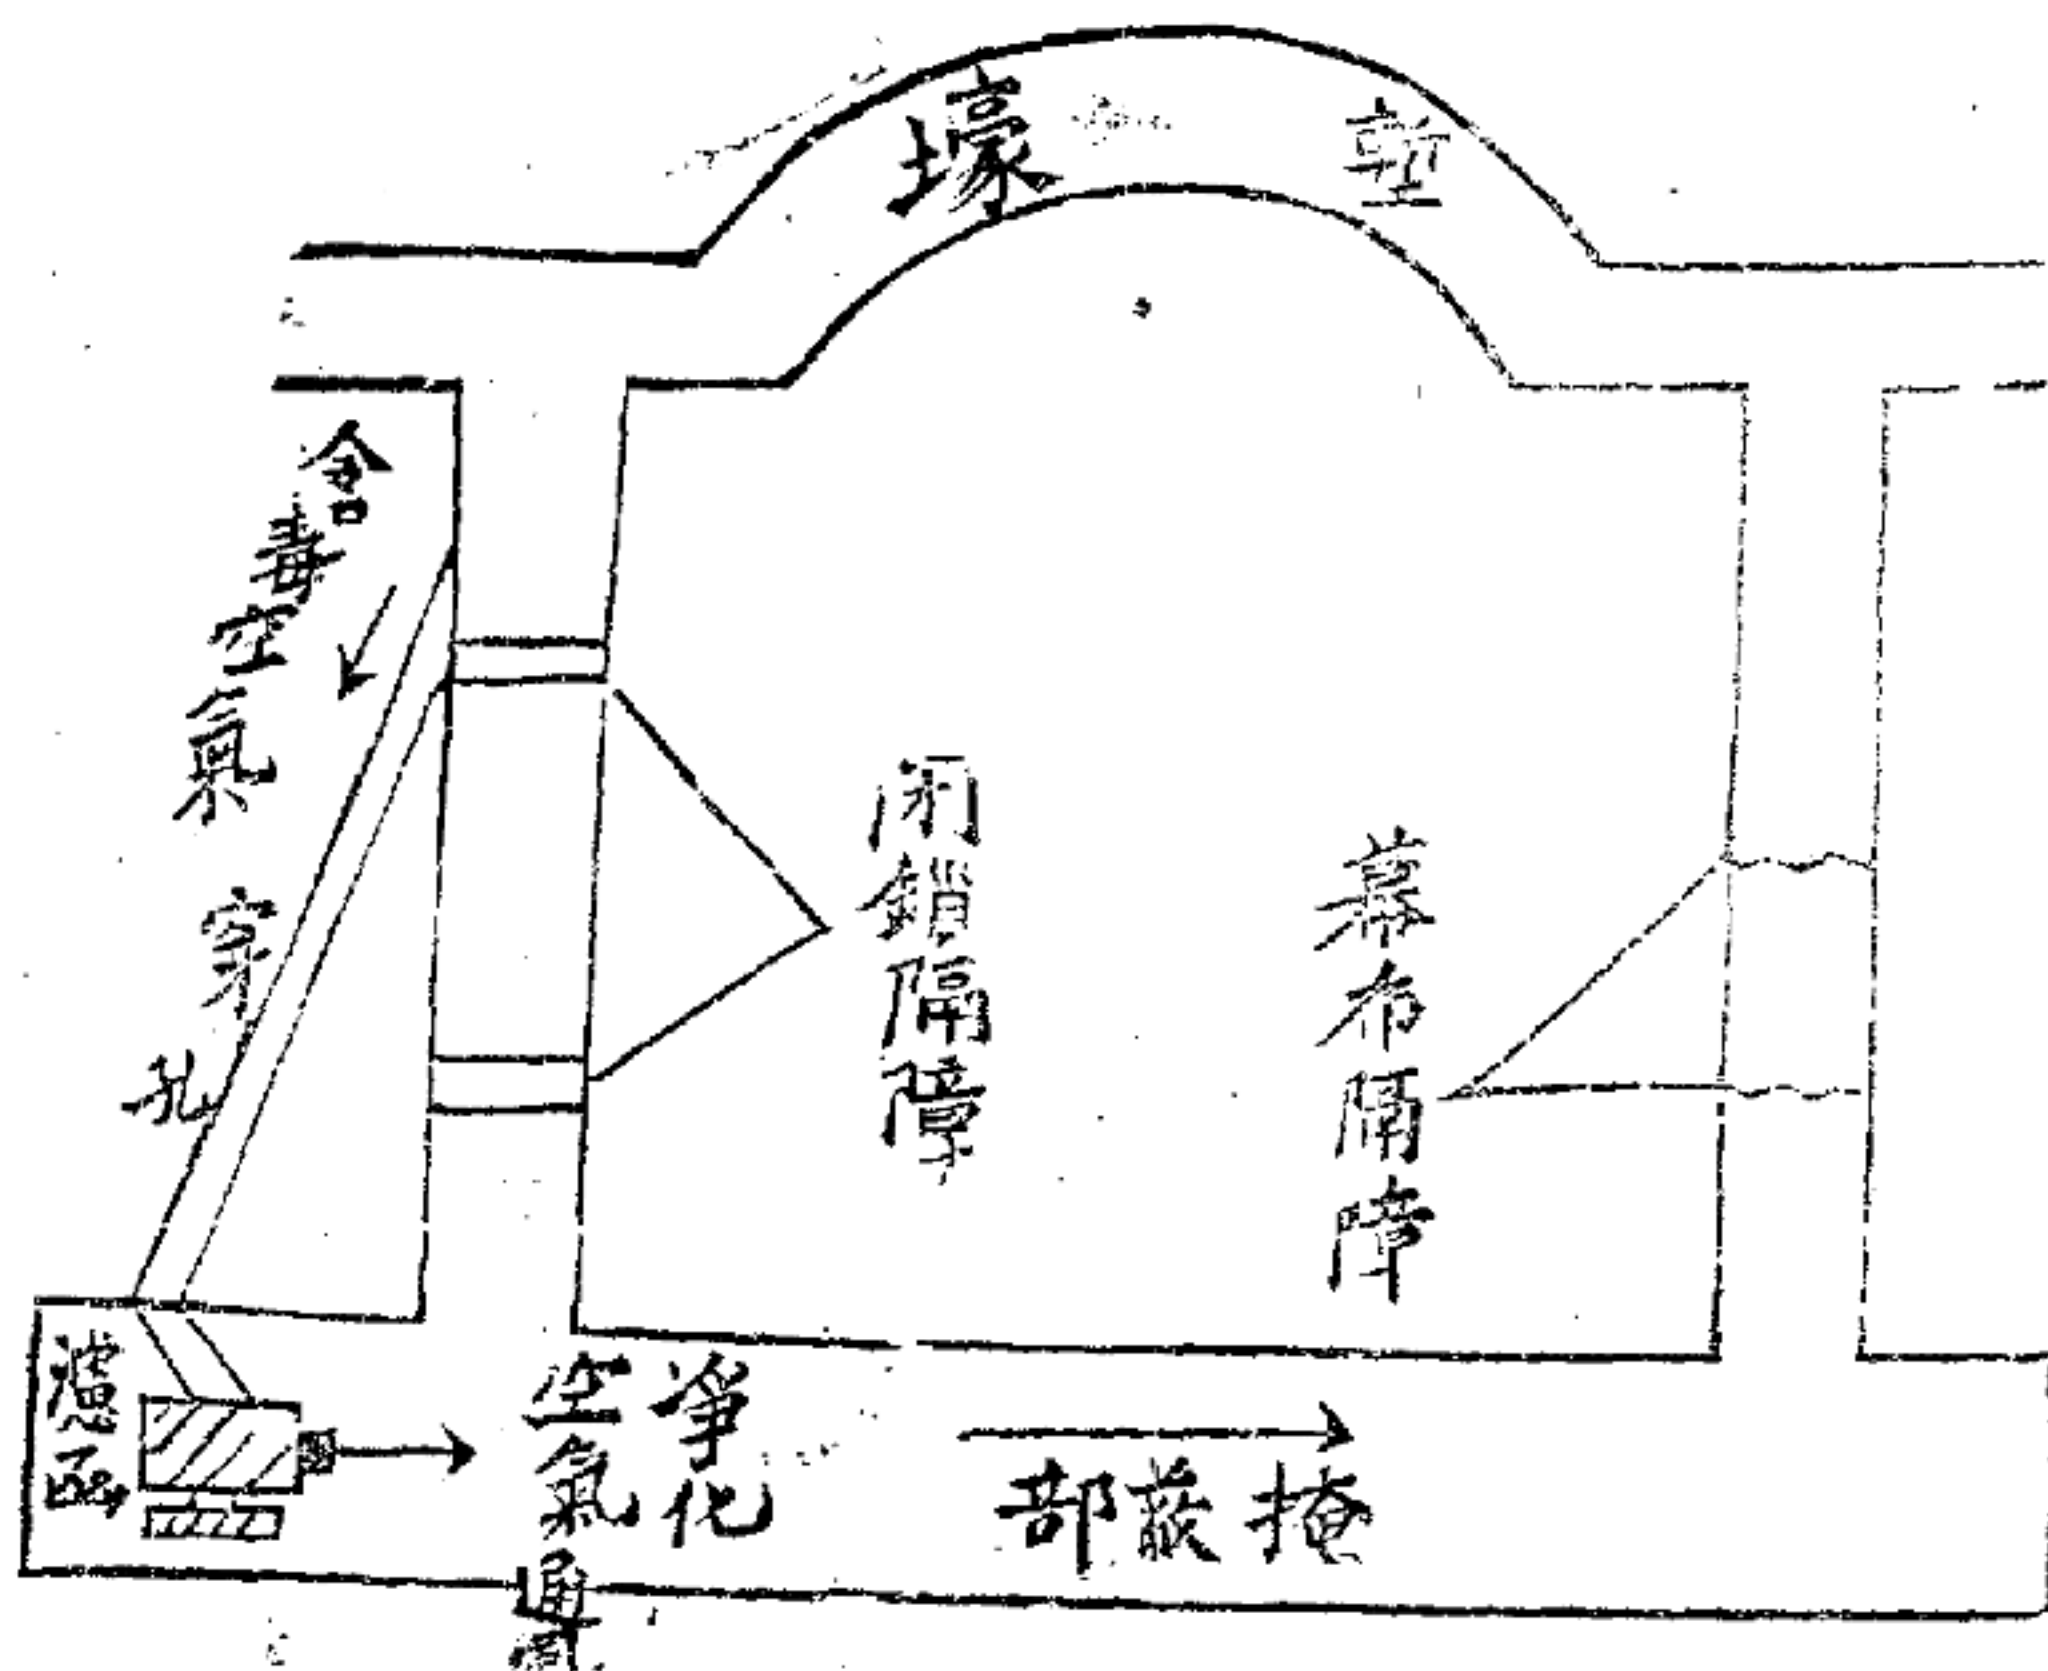 塹壕
含毒空氣
穿孔
閉鎖隔障
幕布隔障
濾函
淨化
空氣
掩蔽部